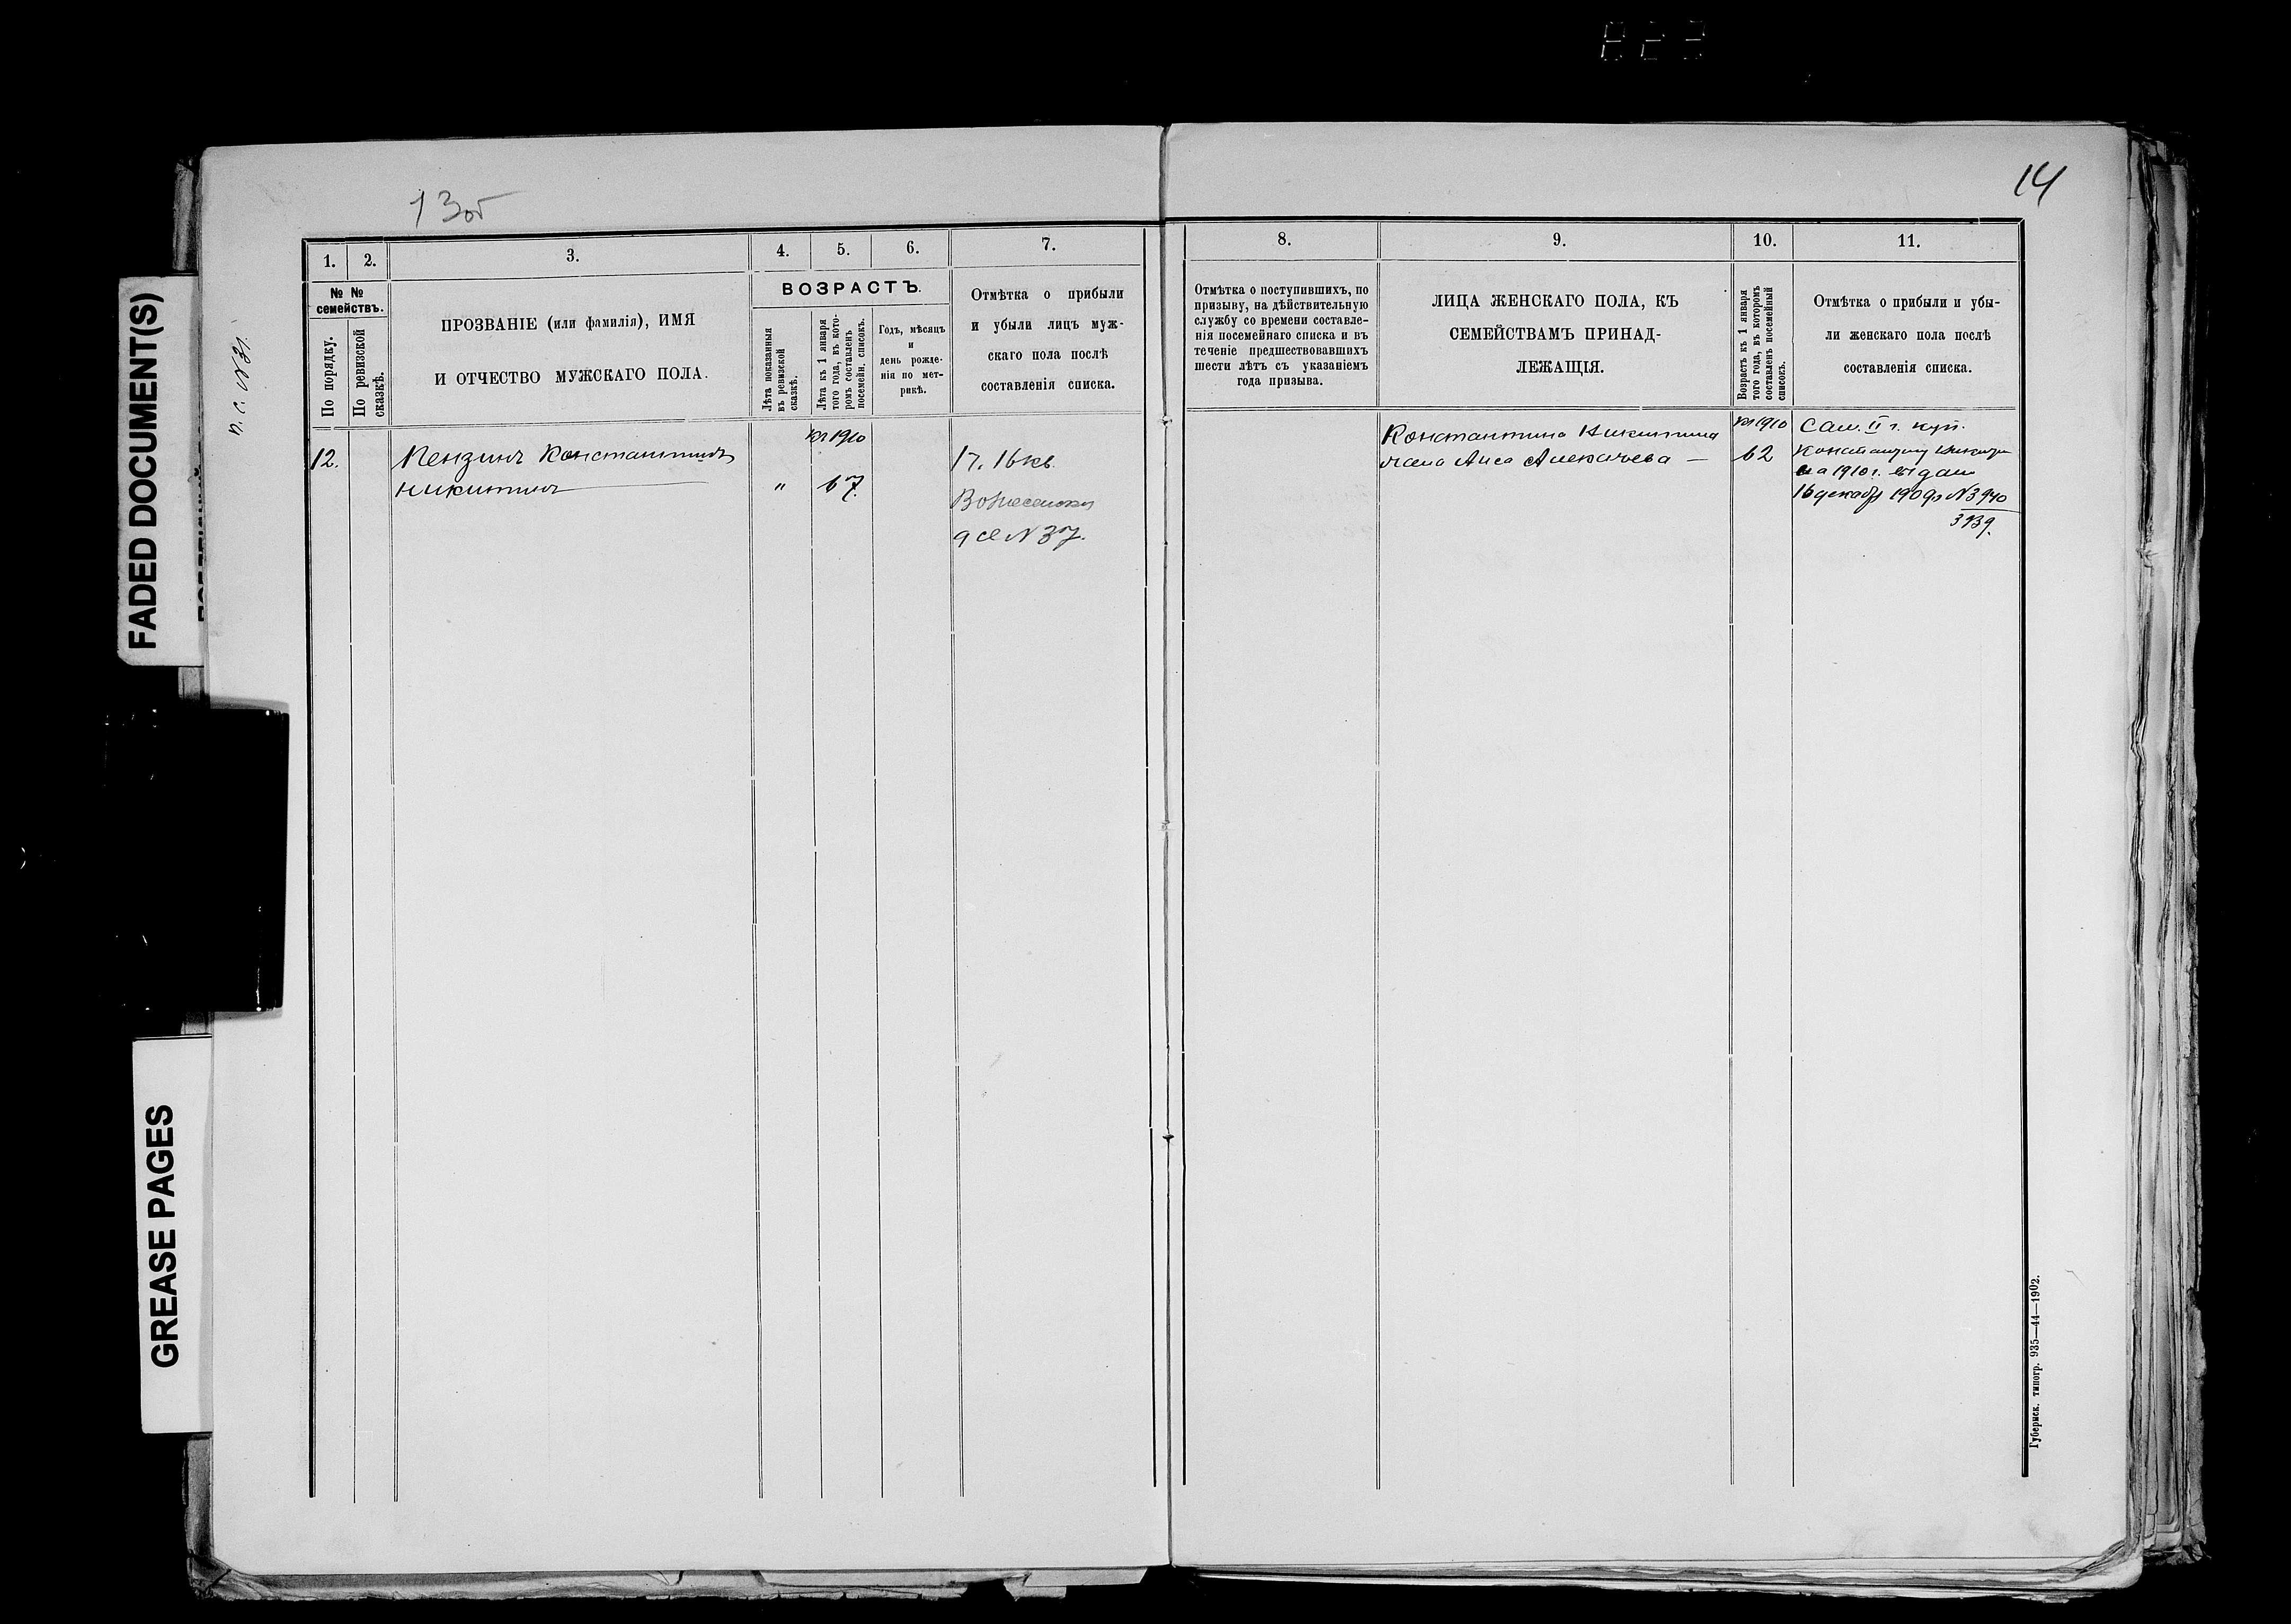 13об
14
FADED DOCUMENT(S)
GREASE PAGES
п. с. №31.
1.
2.
3.
4.
5.
6.
7.
№ №
семействъ.
По порядку.
По ревизской
сказкѣ.
ПРОЗВАНІЕ (или фамилія), ИМЯ
И ОТЧЕСТВО МУЖСКАГО ПОЛА.
ВОЗРАСТЪ.
Лѣта показанныя
въ ревизской
сказкѣ.
Лѣта къ 1 января
того года, въ кото-
ромъ составленъ
посемейн. списокъ.
Годъ, мѣсяцъ
и
день рожде-
нія по мет-
рикѣ.
Отмѣтка о прибыли
и убыли лицъ муж-
скаго пола послѣ
составленія списка.
12.
Кензинъ Константинъ
Никитинъ
на 1910
„
67.
17. 16 кв.
№ 37.
8.
9.
10.
11.
Отмѣтка о поступившихъ, по
призыву, на дѣйствительную
службу со времени составле-
нія посемейнаго списка и въ
теченіе предшествовавшихъ
шести лѣтъ съ указаніемъ
года призыва.
ЛИЦА ЖЕНСКАГО ПОЛА, КЪ
СЕМЕЙСТВАМЪ ПРИНАД-
ЛЕЖАЩІЯ.
Возрастъ къ 1 января
того года, въ которомъ
составленъ посемейный
списокъ.
Отмѣтка о прибыли и убы-
ли женскаго пола послѣ
составленія списка.
Константина Никитина
жена
на 1910
62
Сам. II г. куп.
Константину Никити
на 1910 г. выдан
16 декабр 1909 г №3940
3939.
Губернск. типогр. 935—44—1902.